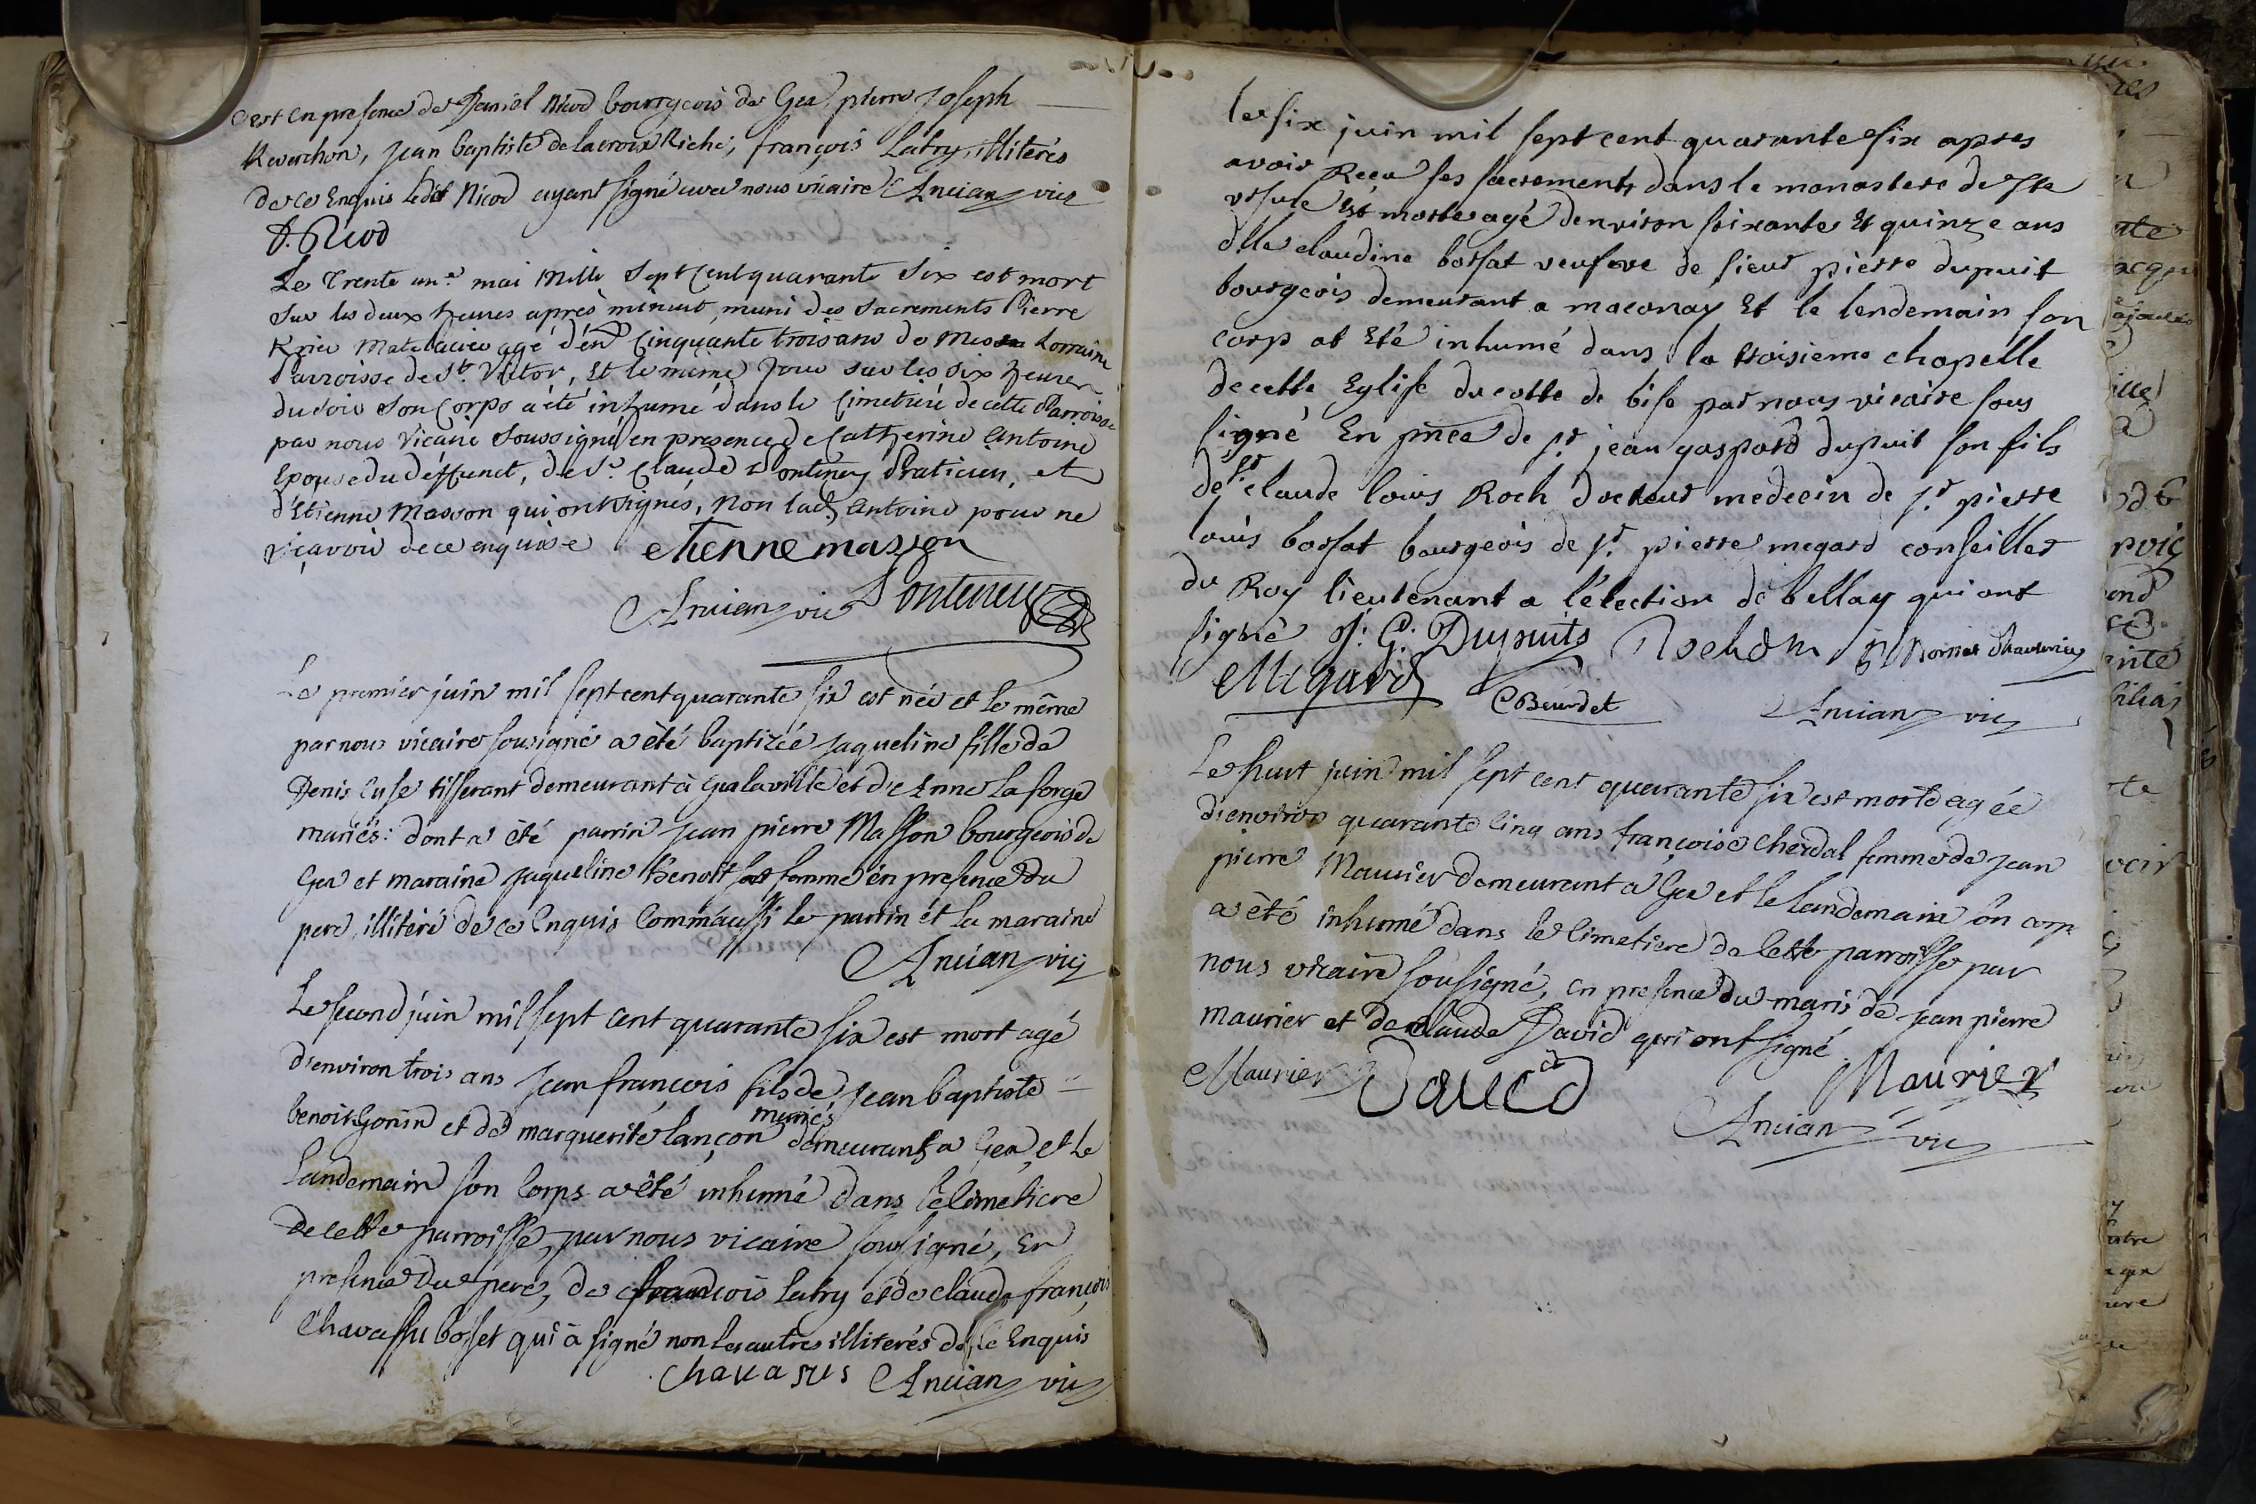 est en presence de Daniel Nicod bourgeois de Gex pierre joseph
Reverchon, jean baptiste delacroix Riche, françois Latry, illiteres
de ce Enquis ledit Nicod ayant signé avec nous vicaire Ancian vic
D. Nicod
Le Trente un.e mai Mille Sept Cent quarante Six est mort
sur les deux heures après minuit, muni des sacrements Pierre
matelacier agé d'env Cinquante trois ans de Lorraine
Parroisse de St. Victor, Et le même Jour sur les six heures
du soir Son Corps a été inhumé dans le Cimetiere de cette Parroisse
par nous Vicaire Soussigné en presence de Catherine Antoine
Epouse du deffunct, de Sr. Claude Ponteney Praticien, et
d'Etienne Masson qui ont signés, Non lad. Antoine pour ne
sçavoir de ce enquise etienne masson
Ancian vic Ponteney
Le premier juin mil sept cent quarante six est née et le même
par nous vicaire sousigné a été baptizée jaqueline fille de
Denis Cuse tisserant demeurant à Gexlaville et d'e Anne la forge
mariés: dont a été parrin jean pierre Masson bourgeois de
Gex et maraine jaqueline Benoit sa femme en presence du
pere, illiteré de ce Enquis Comm'aussi le parrin et la maraine
Ancian vic
Le second juin mil sept cent quarante six est mort agé
d'environ trois ans jean françois fils de jean baptiste
mariés
benoit Gonin et de marguerite lançon demeurants a Gex, et le
landemain son Corps a été inhumé dans le Cimetiere
de cette parroisse, par nous vicaire sousigné, En
presence du pere, de françois latry et de claude françois
Chavassu bosset qui a signé non les autres illiterés de ce Enquis
Chavasus Ancian vic
le six juin mil sept cent quarante six apres
avoir Reçu ses sacrements dans le monastere de Ste
vrsule Est morte agé denviron soixante Et quinze ans
dlle claudine bossat veufve de sieur pierre dupuit
bourgeois demeurant a maconay Et le lendemain son
corp at Eté inhumé dans la troisieme chapelle
de cette Eglise du cotté de bise par nous vicaire sous
signé En pnce de sr. jean gaspard dupuit son fils
de sr. claude louis Roch docteur medecin de sr. pierre
louis bossat bourgeois de sr. pierre megard conseiller
du Roy lieutenant a l'élection de bellay qui ont
signé J: G: Dupuits Roch d m
Megard CBeurdet Ancian vic
Le huit juin mil sept cent quarante six est morte agée
d'environ quarante cinq ans françoise Cherdal femme de jean
pierre Maurier demeurant a Gex et le landemain son corp
a été inhumé dans le Cimetiere de Cette parroisse par
nous vicaire sousigné, en presence du maris de jean pierre
maurier et de claude David qui ont signé
Maurier David Maurier
Ancian vic